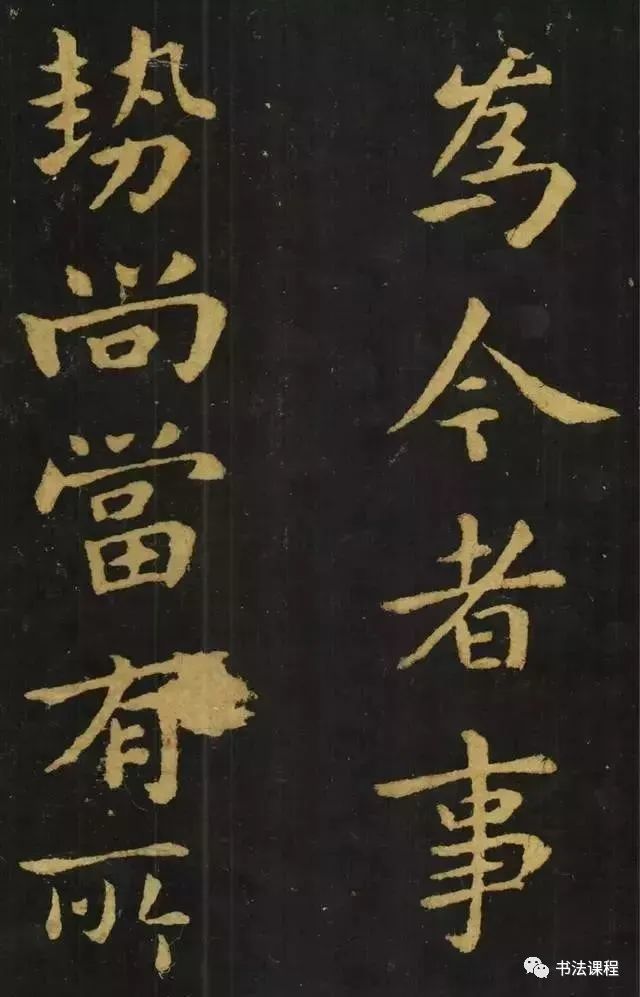 為今者事
勢尚當有所
书法课程